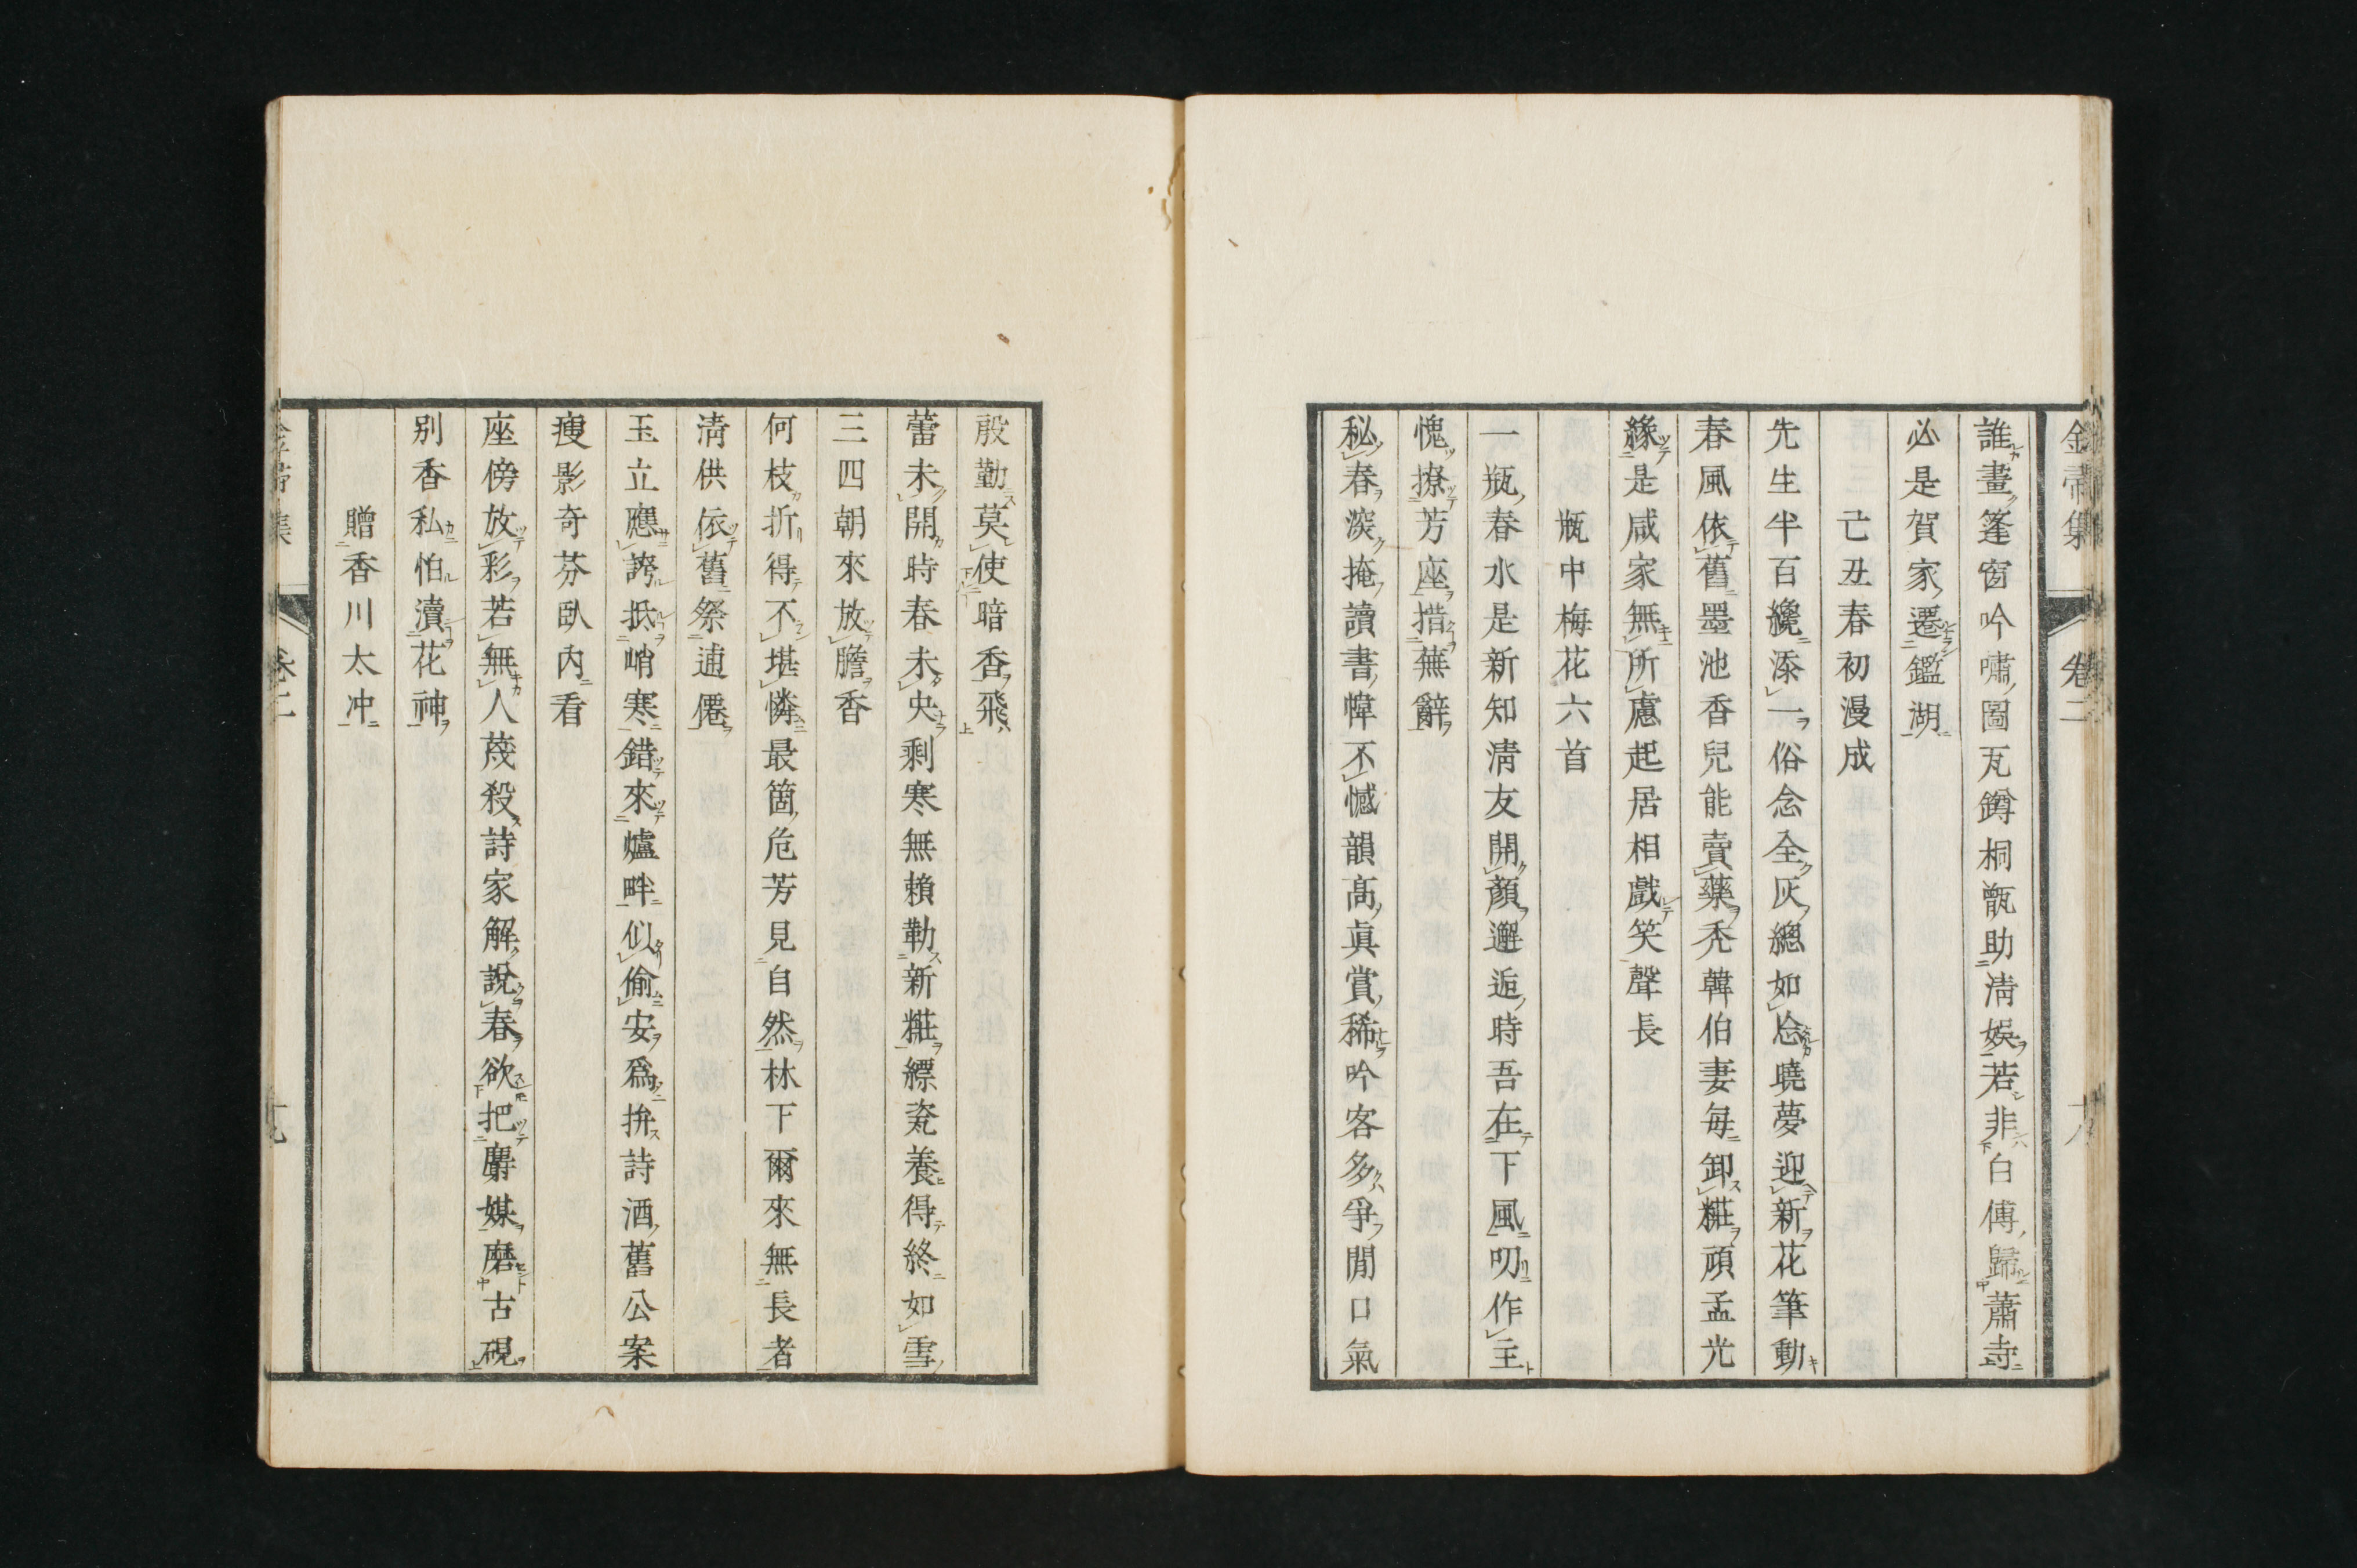 金帚集 卷二 十八
誰畫篷窗吟嘯圖瓦罇桐甑助淸娯若非白傅歸蕭寺
必是賀家遷鑑湖
己丑春初漫成
先生半百纔添一俗念全灰總如曉夢迎新花筆動
春風依舊墨池香兒能賣藥禿韓伯妻每卸糚頑孟光
緣是咸家無所慮起居相戲笑聲長
瓶中梅花六首
一瓶春水是新知淸友開顏邂逅時吾在下風叨作主
愧撩芳座措蕪辭
秘春深掩讀書幃不憾韻高眞賞稀吟客多爭閒口氣
殷勤莫使暗香飛
蕾未開時春未央剩寒無賴勒新糚縹瓷養得終如雪
三四朝來放膽香
何枝折得不堪憐最箇危芳見自然林下爾來無長者
淸供依舊祭逋僊
玉立應誇抵峭寒錯來爐畔似偷安爲拚詩酒舊公案
瘦影奇芬臥內看
座傍放彩若無人蔑殺詩家解說春欲把麝媒磨古硯
別香私怕瀆花神
贈香川太冲
集 卷二